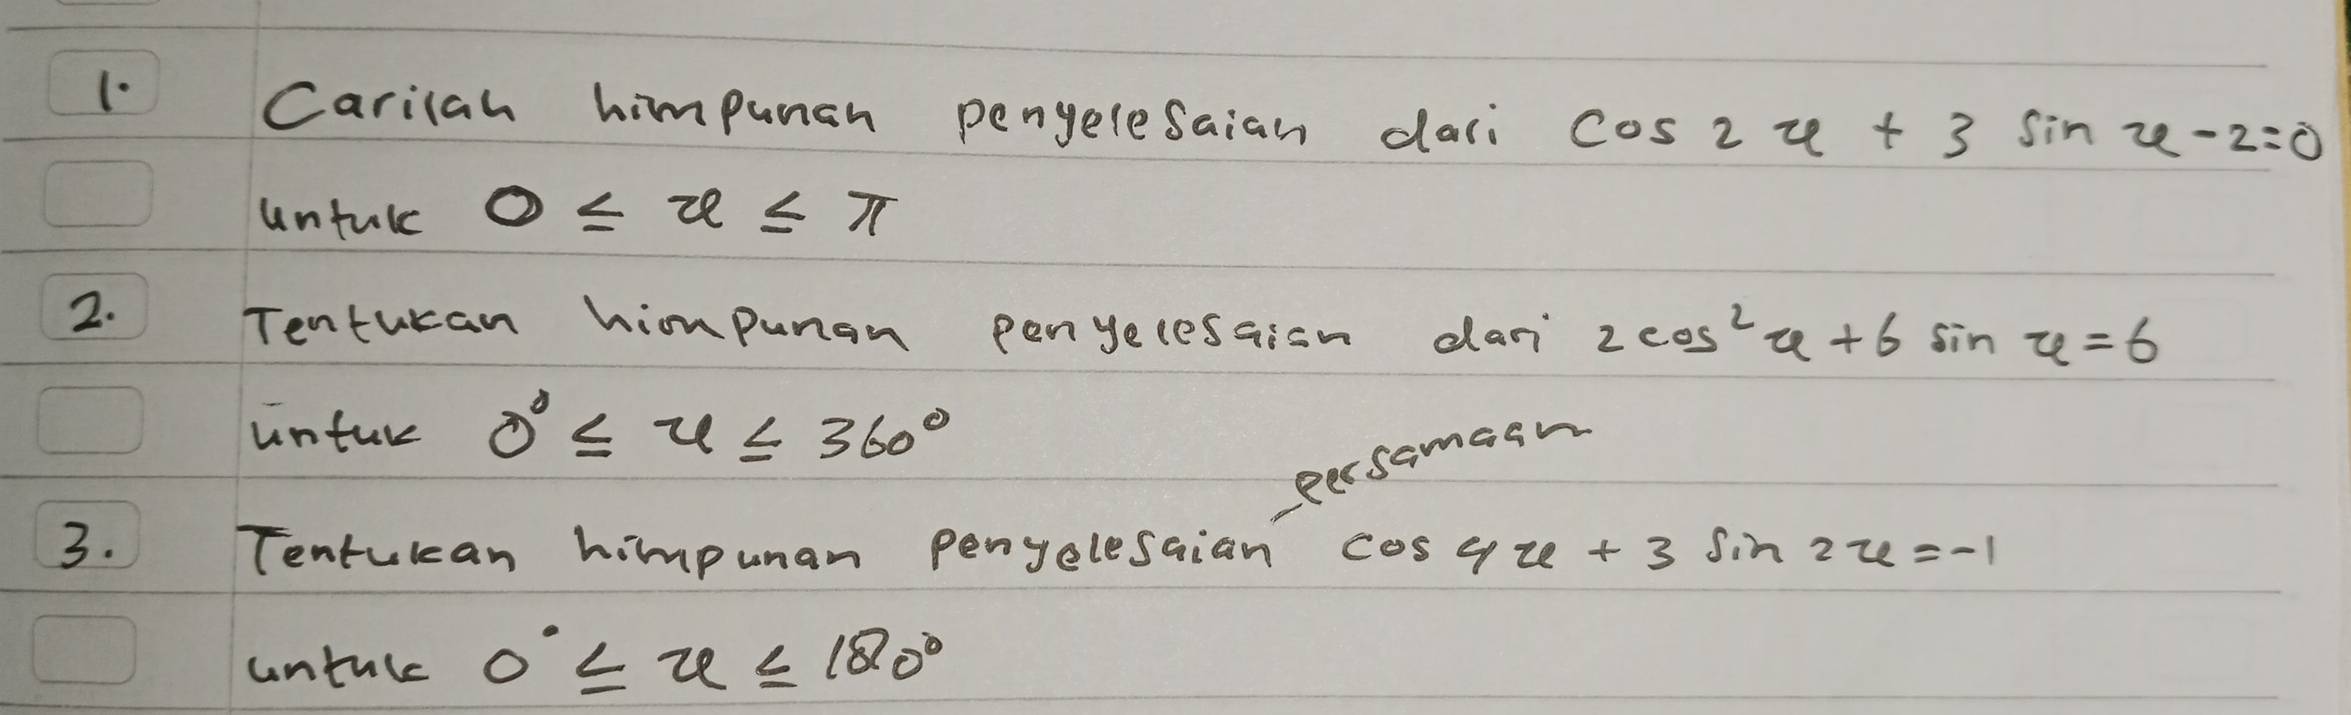 1. Carilah himpunan penyelesaian dari cos 2x + 3 sin x - 2 = 0
untuk 0 ≤ x ≤ π
2. Tentukan himpunan penyelesaian dari 2 cos² x + 6 sin x = 6
untuk 0° ≤ x ≤ 360°
persamaan
3. Tentukan himpunan penyelesaian cos 4x + 3 sin 2x = -1
untuk 0° ≤ x ≤ 180°